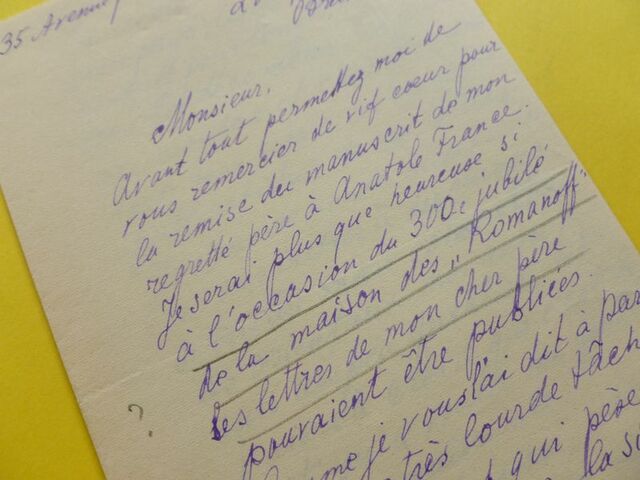 35 Avenue
Monsieur,
Avant tout permettez moi de
vous remercier de vif coeur pour
la remise du manuscrit de mon
regretté père à Anatole France.
Je serai plus que heureuse si
à l'occasion du 300e jubilé
de la maison des „Romanoff"
les lettres de mon cher père
pouvaient être publiées.
me je vous l'ai dit à par
très lourde tâch
qui père
la si
?